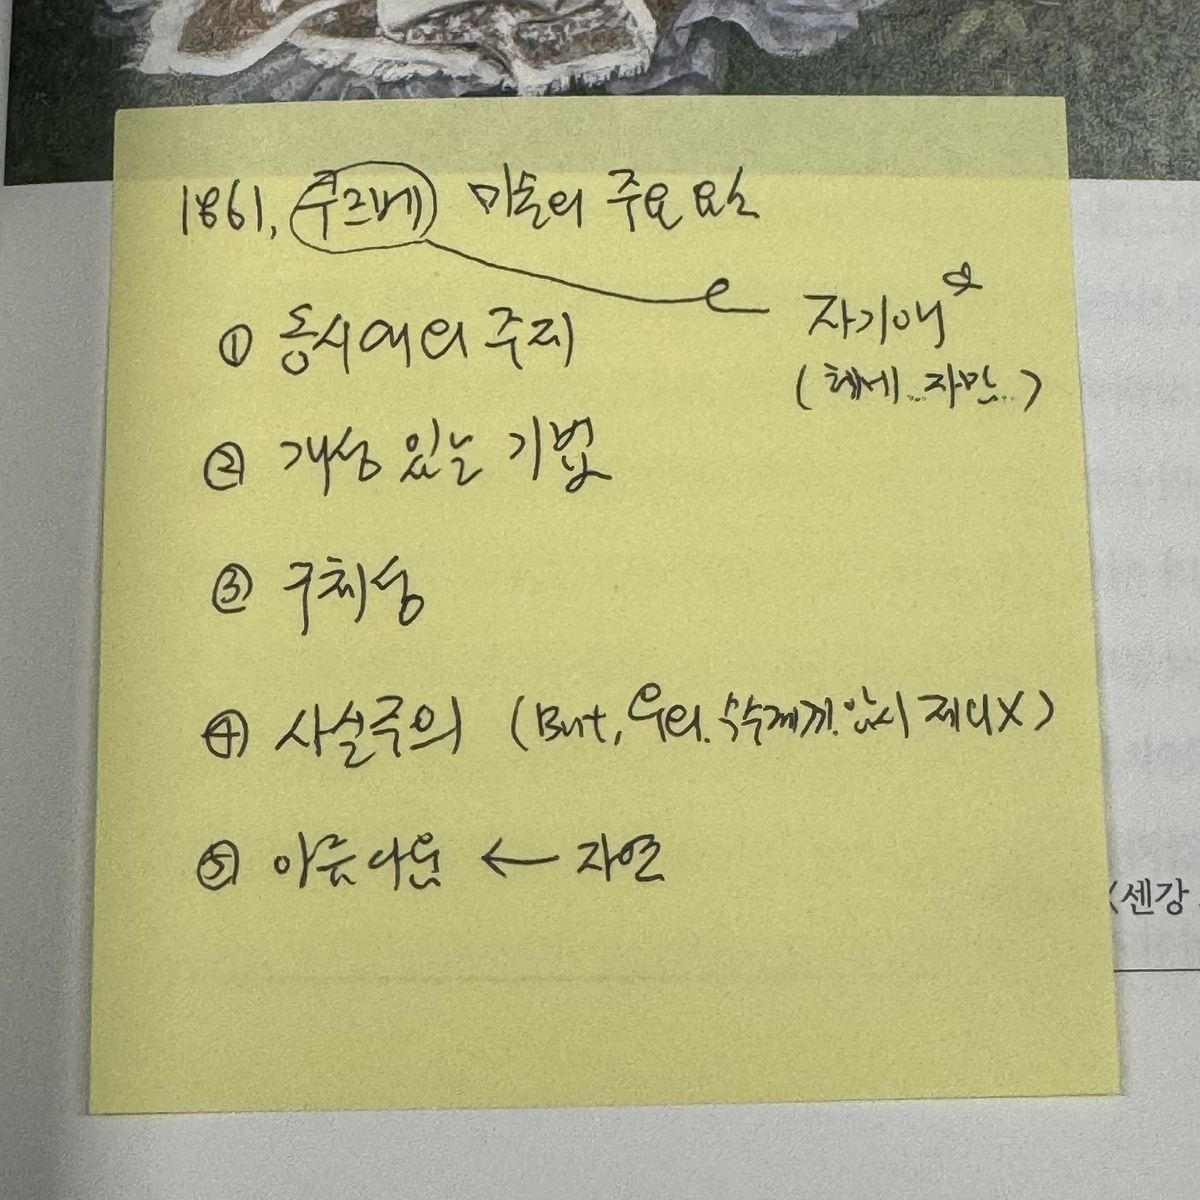 1861, 쿠르베 미술의 주요 요소
자기애
(허세..자만..)
① 동시대의 주제
② 개성 있는 기법
③ 구체성
④ 사실주의 (But, 우의. 수수께끼. 암시 제외X)
⑤ 아름다운 ← 자연
<센강